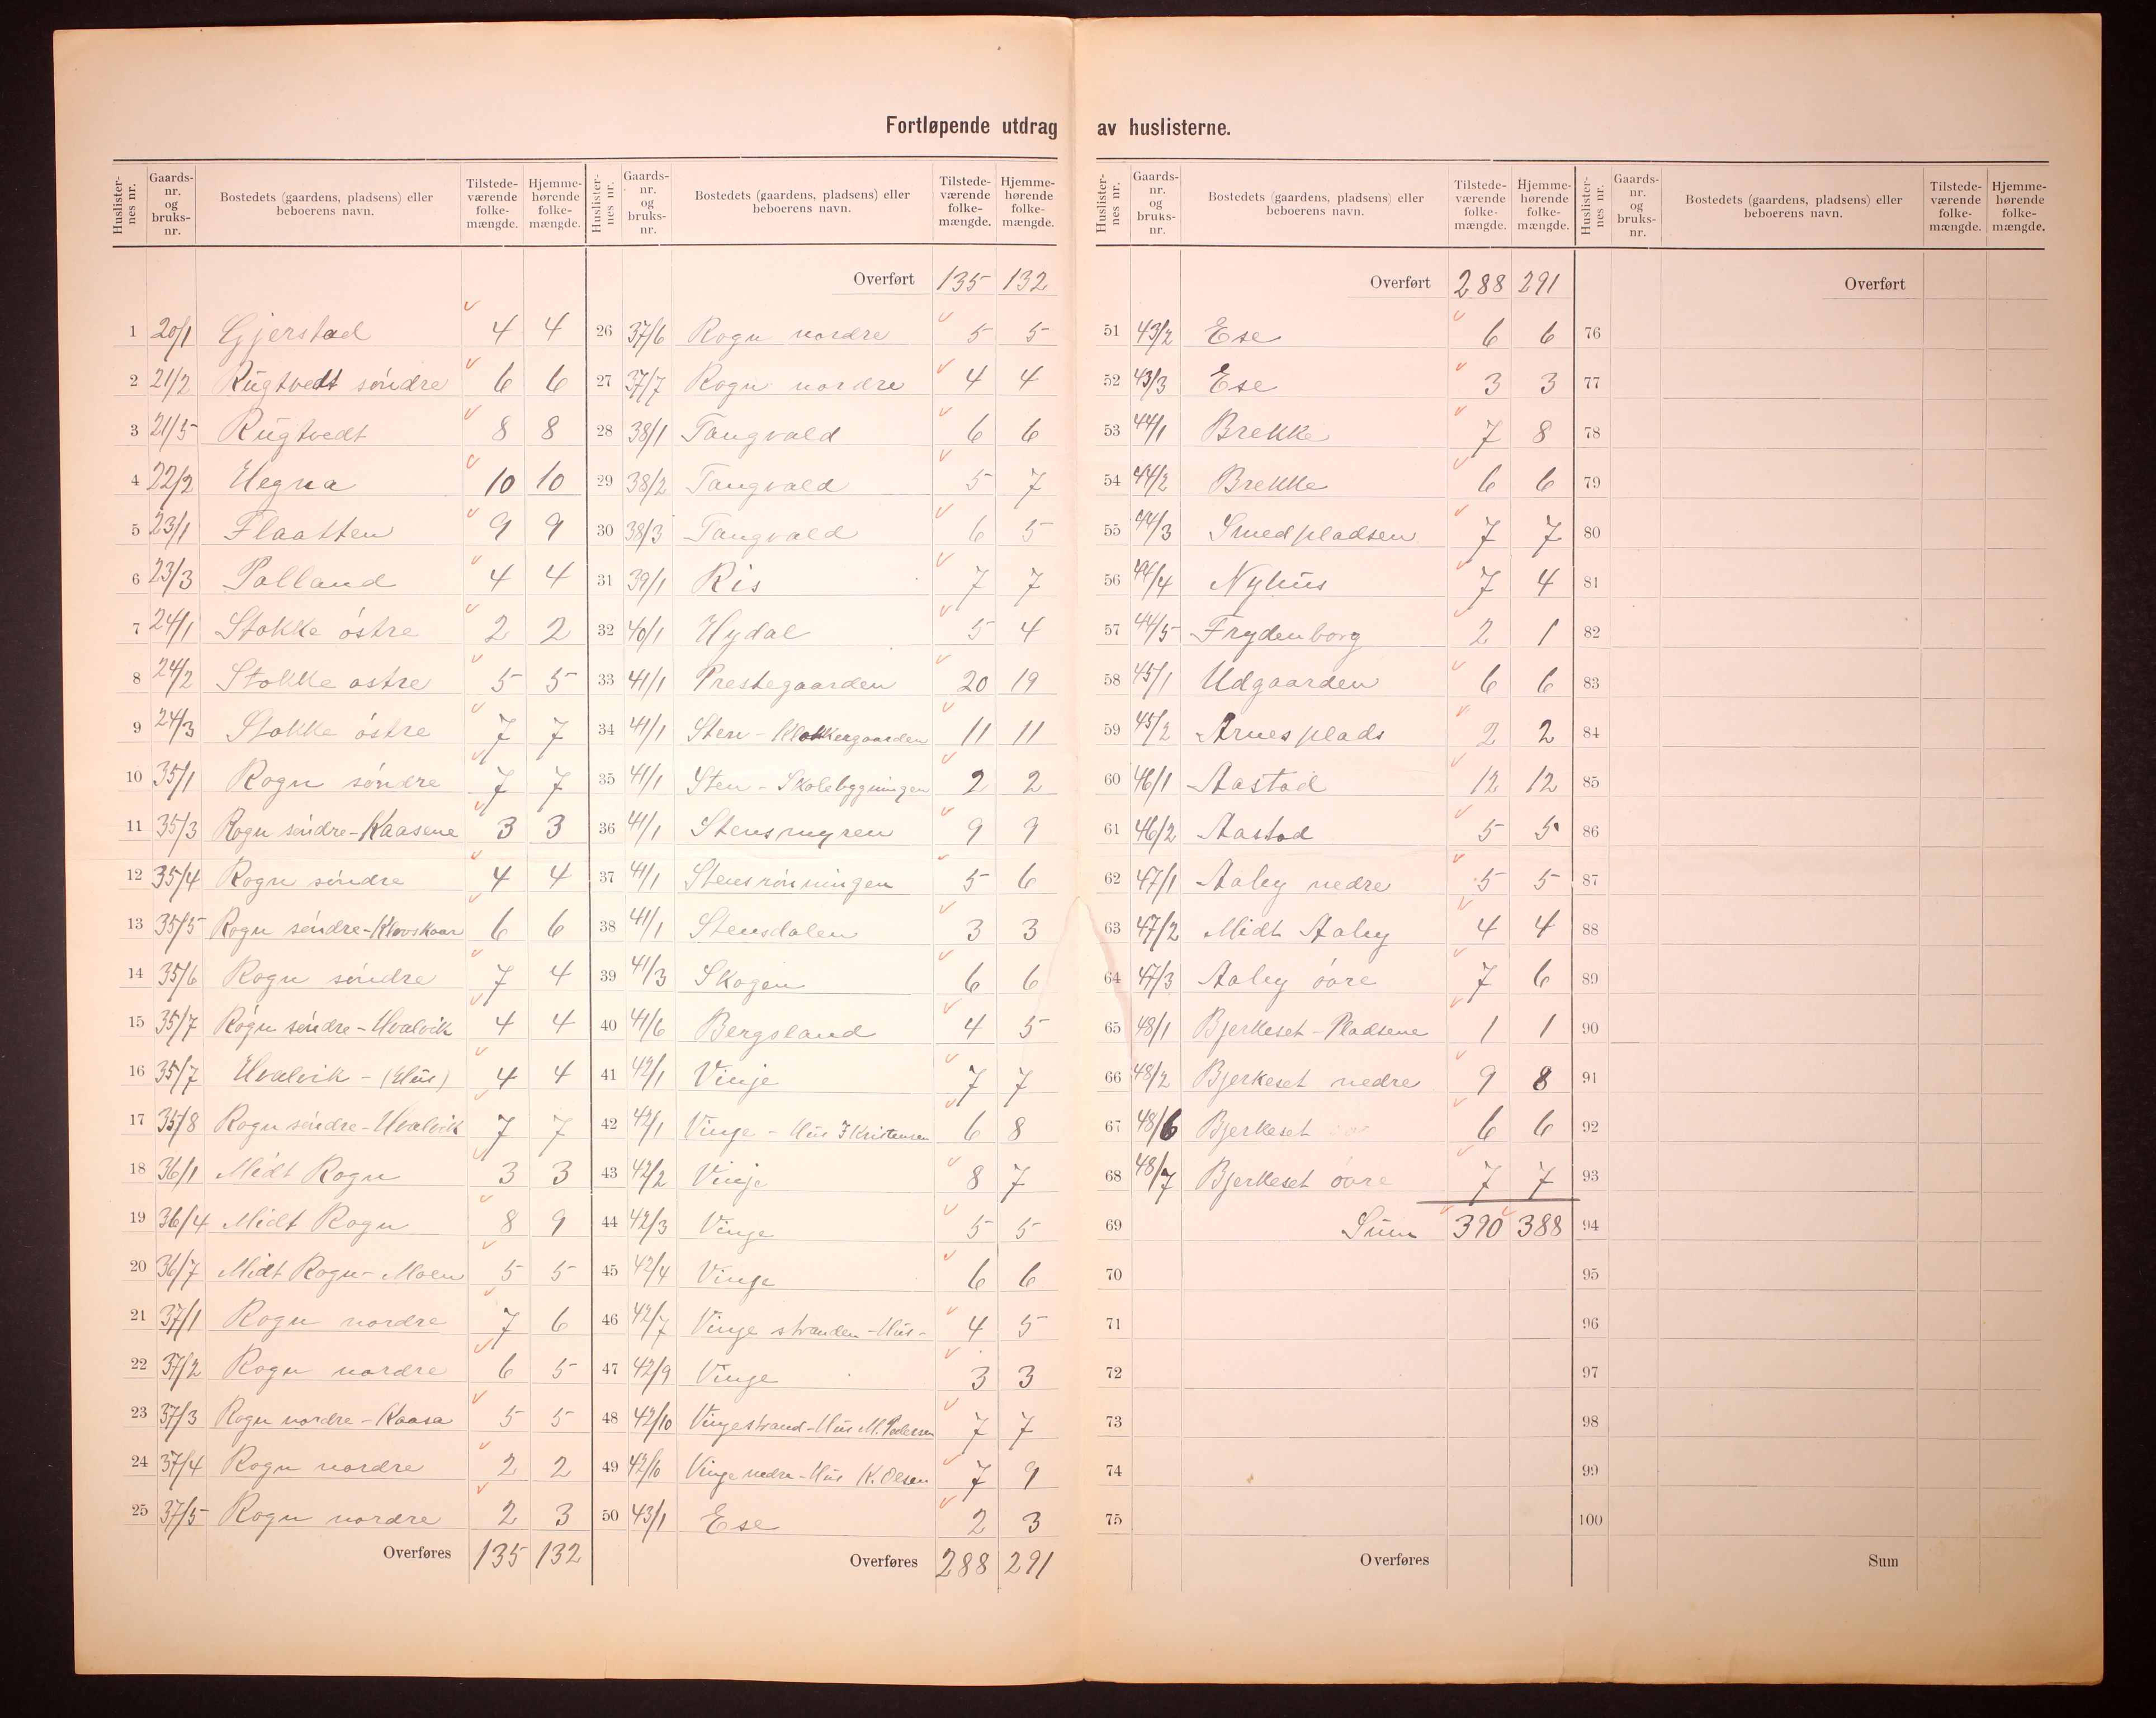 Fortløpende utdrag av huslisterne.
Huslisternes nr. Gaardsnr. og bruksnr. Bostedets (gaardens, pladsens) eller beboerens navn. Tilstedeværende folkemængde. Hjemmehørende folkemængde.
1 20/1 Gjerstad 4 4
2 21/2 Rugtvedt søndre 6 6
3 21/5 Rugtvedt 8 8
4 22/2 Hegna 10 10
5 23/1 Flaatten 9 9
6 23/3 Palland 4 4
7 24/1 Stokke østre 2 2
8 24/2 Stokke østre 5 5
9 24/3 Stokke østre 7 7
10 35/1 Rogn søndre 7 7
11 35/3 Rogn søndre-Kaasene 3 3
12 35/4 Rogn søndre 4 4
13 35/5 Rogn søndre-Klovskaar 6 6
14 35/6 Rogn søndre 7 4
15 35/7 Rogn søndre-Hvalvik 4 4
16 35/7 Hvalvik - (Hus) 4 4
17 35/8 Rogn søndre-Hvalvik 7 7
18 36/1 Midt Rogn 3 3
19 36/4 Midt Rogn 8 9
20 36/7 Midt Rogn-Moen 5 5
21 37/1 Rogn nordre 7 6
22 37/2 Rogn nordre 6 5
23 37/3 Rogn nordre-Kaasa 5 5
24 37/4 Rogn nordre 2 2
25 37/5 Rogn nordre 2 3
Overføres 135 132
Huslisternes nr. Gaardsnr. og bruksnr. Bostedets (gaardens, pladsens) eller beboerens navn. Tilstedeværende folkemængde. Hjemmehørende folkemængde.
Overført 135 132
26 37/6 Rogn nordre 5 5
27 37/7 Rogn nordre 4 4
28 38/1 Tangvald 6 6
29 38/2 Tangvald 5 7
30 38/3 Tangvald 6 5
31 39/1 Ris 7 7
32 40/1 Hydal 5 4
33 41/1 Prestegaarden 20 19
34 41/1 Sten-Klokkergaarden 11 11
35 41/1 Sten-Skolebygningen 2 2
36 41/1 Stensmyren 9 9
37 41/1 Stensrønningen 5 6
38 41/1 Stensdalen 3 3
39 41/3 Skogen 6 6
40 41/6 Bergsland 4 5
41 42/1 Vinje 7 7
42 42/1 Vinje - Hus J Kristensen 6 8
43 42/2 Vinje 8 7
44 42/3 Vinje 5 5
45 42/4 Vinje 6 6
46 42/7 Vinje stranden-Hus- 4 5
47 42/9 Vinje 3 3
48 42/10 Vinjestrand-Hus M. Pedersen 7 7
49 42/10 Vinje nedre-Hus K. Olsen 7 9
50 43/1 Ese 2 3
Overføres 288 291
Huslisternes nr. Gaardsnr. og bruksnr. Bostedets (gaardens, pladsens) eller beboerens navn. Tilstedeværende folkemængde. Hjemmehørende folkemængde.
Overført 288 291
51 43/2 Ese 6 6
52 43/3 Ese 3 3
53 44/1 Brekke 7 8
54 44/2 Brekke 6 6
55 44/3 Smedpladsen 7 7
56 44/4 Nyhus 7 4
57 44/5 Frydenborg 2 1
58 45/1 Udgaarden 6 6
59 45/2 Arnesplads 2 2
60 46/1 Aastad 12 12
61 46/2 Aastad 5 5
62 47/1 Aaby nedre 5 5
63 47/2 Midt Aaby 4 4
64 47/3 Aaby øvre 7 6
65 48/1 Bjerkeset-Pladsene 1 1
66 48/2 Bjerkeset nedre 9 8
67 48/6 Bjerkeset 6 6
68 48/7 Bjerkeset øvre 7 7
69 Sum 390 388
70
71
72
73
74
75
Overføres
Huslisternes nr. Gaardsnr. og bruksnr. Bostedets (gaardens, pladsens) eller beboerens navn. Tilstedeværende folkemængde. Hjemmehørende folkemængde.
Overført
76
77
78
79
80
81
82
83
84
85
86
87
88
89
90
91
92
93
94
95
96
97
98
99
100
Sum